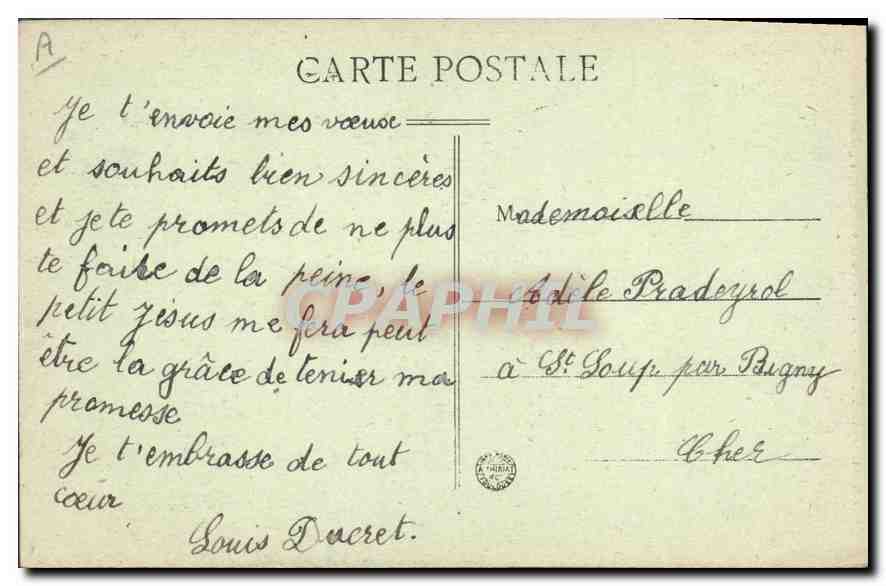 A
CARTE POSTALE
Je t'envoie mes vœuse
et souhaits bien sincères
et je te promets de ne plus
te faire de la peine, le
petit Jésus me fera peut
être la grâce de tenir ma
promesse
Je t'embrasse de tout
cœur
Louis Ducret.
Mademoiselle
Adèle Pradeyrol
à St. Loup par Bigny
Cher
CPAPHIL